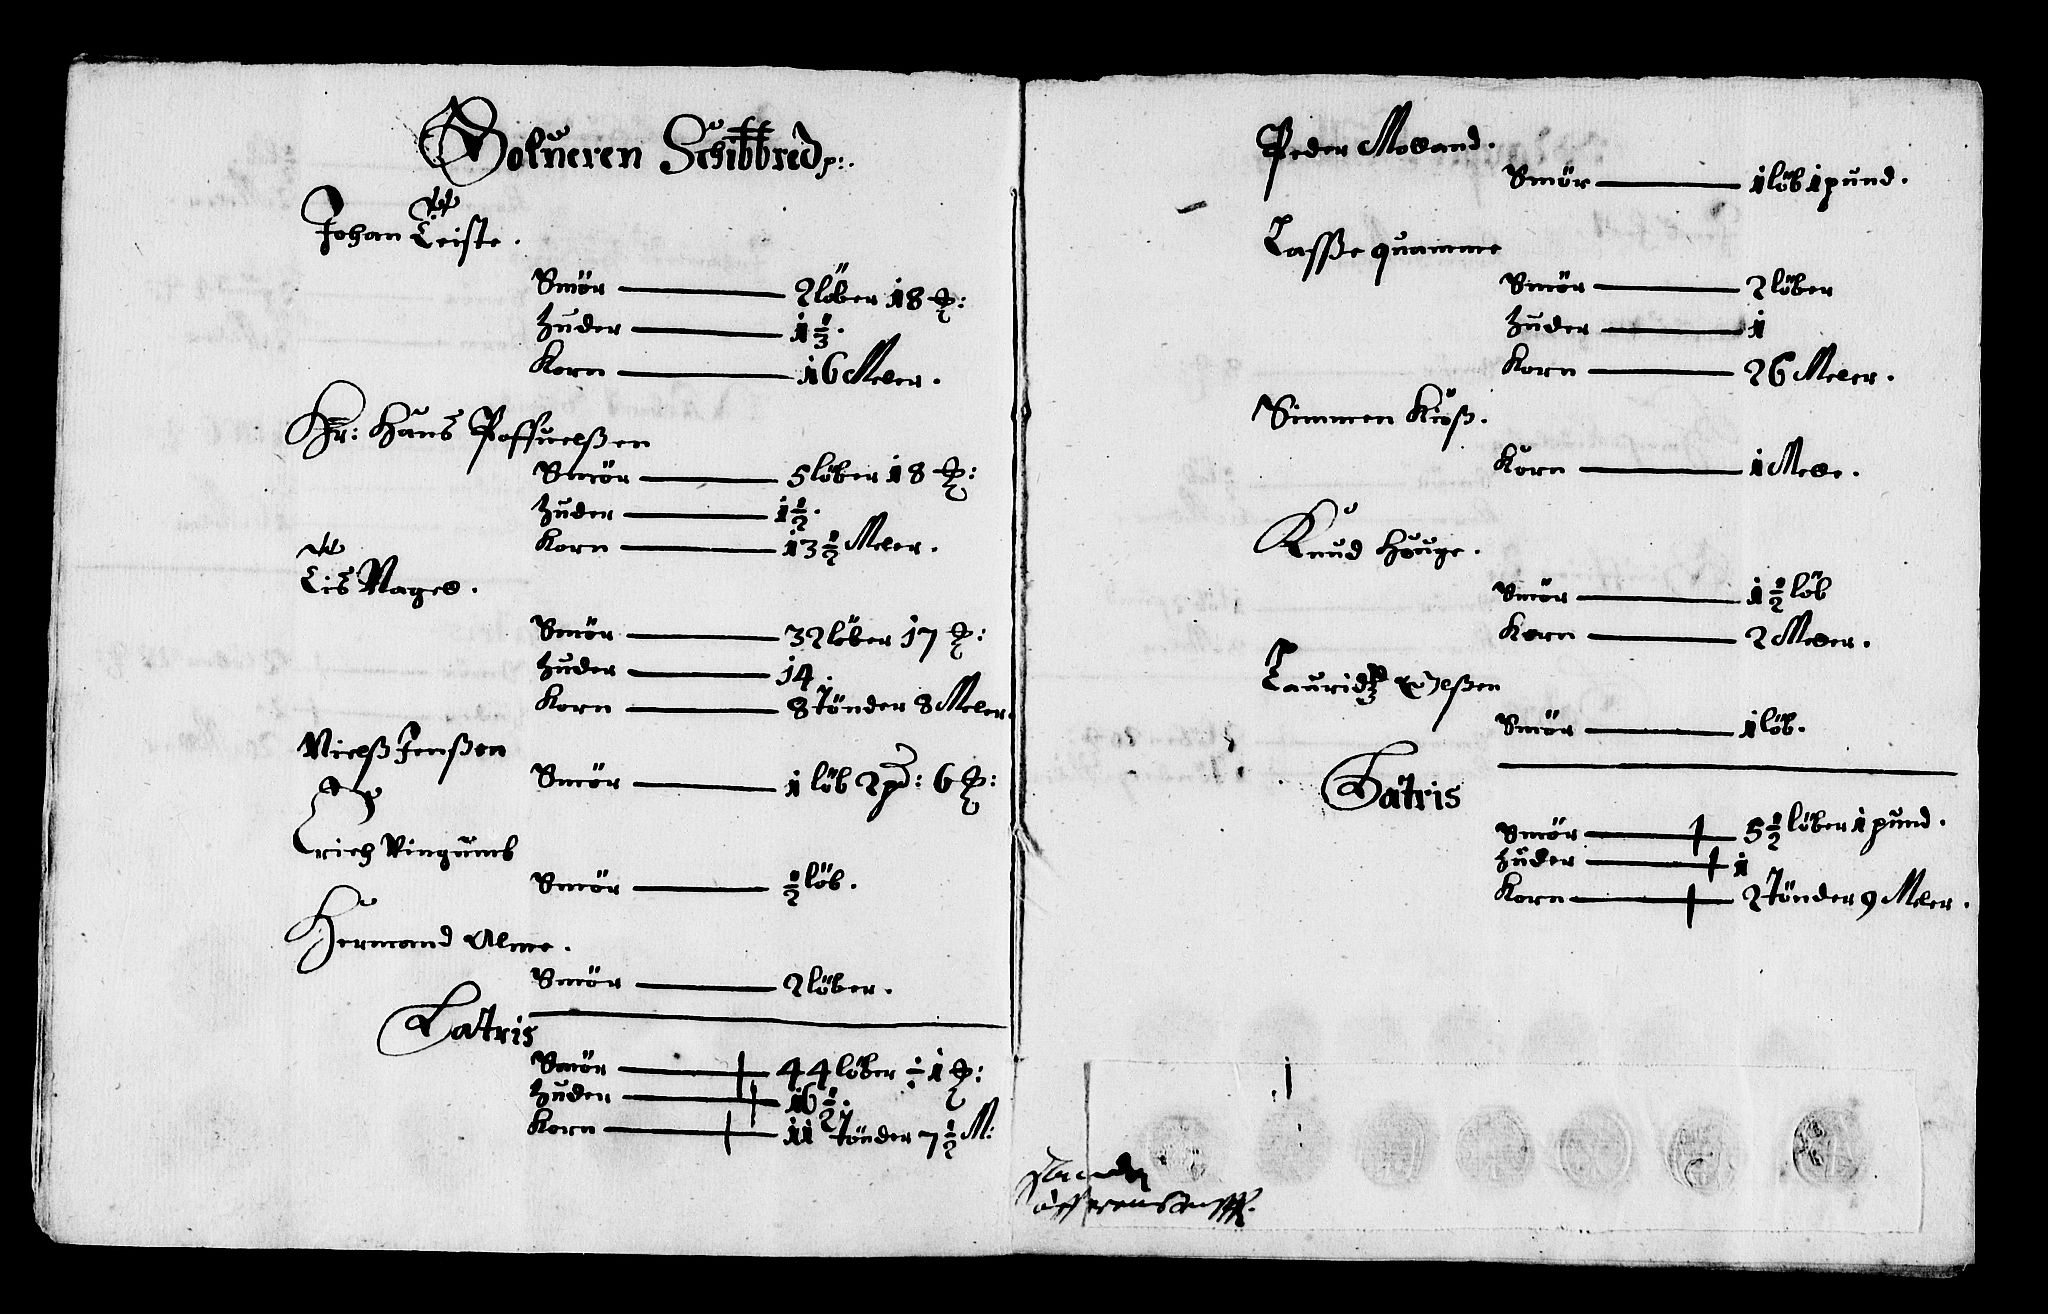 Solueren Schibbred p:.
Johan Teiste.
Smör 2 löber 18 ꝶ:
huder 1 1/3.
Korn 16 Meler.
Hr: Hans Poffuelßen
Smör 5 löber 18 ꝶ:
huder 1 1/2.
Korn 13 1/2 Meler.
Lis Nagel.
Smör 32 löber 17 ꝶ:
huder 14.
Korn 8 Tönder 8 Meler.
Nielß Jenßen
Smör 1 löb 2 pd: 6 ꝶ:
Erich Vingumb
Smör 1/2 löb.
Hermand Alme.
Smör 2 löber.
Latris
Smör 44 löber ÷ 1 ꝶ:
huder 16 1/2.
Korn 11 Tönder 7 1/2 M:
Peder Moland.
Smör 1 löb 1 pund.
Lasße quamme
Smör 2 löber
huder 1
Korn 26 Meler.
Simmen Kiöß.
Korn 1 Mele.
Knud Houge.
Smör 1 1/2 löb
Korn 2 Meler.
Lauridz
Smör 1 löb.
Latris
Smör 5 1/2 löber 1 pund.
huder 1
Korn 2 Tönder 9 Meler.